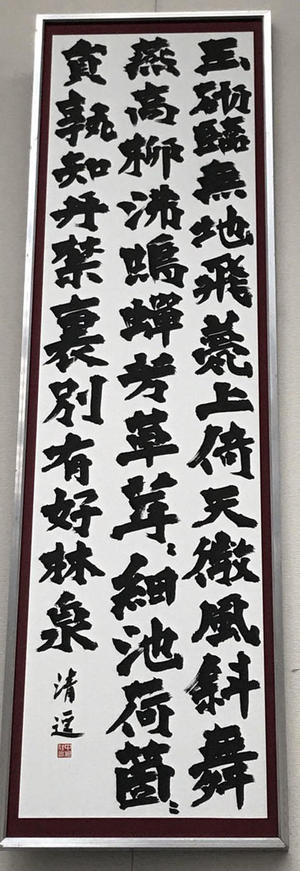 玉砌臨無地飛甍上倚天微風斜舞
燕高柳沸鳴蟬芳草茸〻細池荷箇〻
員孰知丹禁裏別有好林泉
清